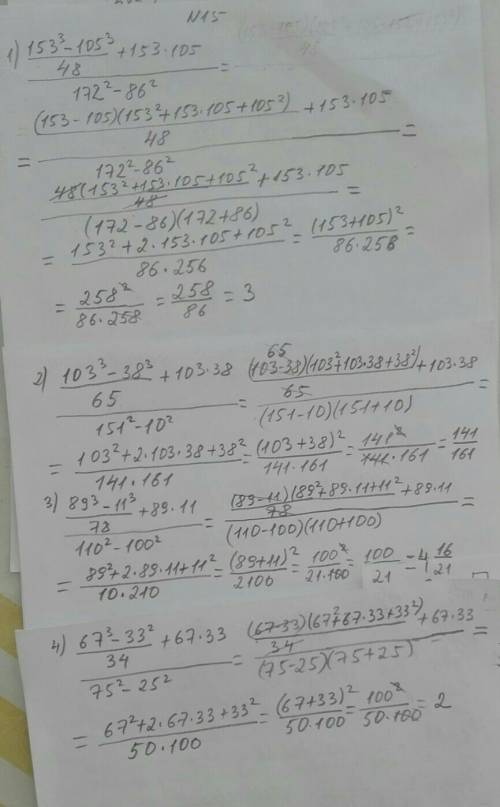 N15
1) (153³-105³)/48 + 153·105 / 172²-86² =
= (153-105)(153²+153·105+105²)/48 + 153·105 / 172²-86² =
48(153²+153·105+105²)/48 + 153·105 / (172-86)(172+86) =
= 153²+2·153·105+105² / 86·256 = (153+105)² / 86·258 =
= 258² / 86·258 = 258/86 = 3
2) (103³-38³)/65 + 103·38 / 151²-10² = 65 (103-38)(103²+103·38+38²)/65 + 103·38 / (151-10)(151+10) =
= 103²+2·103·38+38² / 141·161 = (103+38)² / 141·161 = 141² / 141·161 = 141/161
3) (89³-11³)/78 + 89·11 / 110²-100² = (89-11)(89²+89·11+11²)/78 + 89·11 / (110-100)(110+100) =
= 89²+2·89·11+11² / 10·210 = (89+11)² / 2100 = 100² / 21·100 = 100/21 = 4 16/21
4) (67³-33²)/34 + 67·33 / 75²-25² = (67-33)(67²+67·33+33²)/34 + 67·33 / (75-25)(75+25) =
= 67²+2·67·33+33² / 50·100 = (67+33)² / 50·100 = 100² / 50·100 = 2